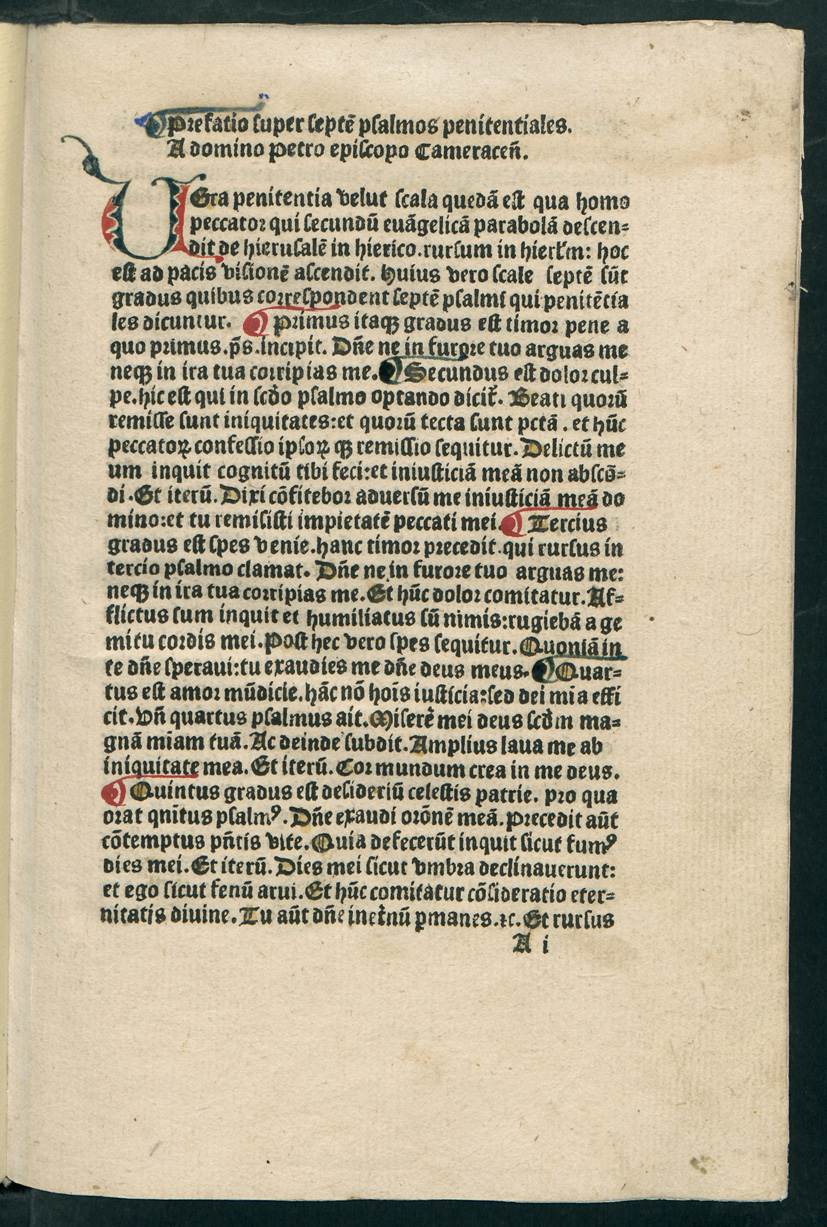 Prefatio super septē psalmos penitentiales.
A domino Petro episcopo Cameraceñ.
VEra penitentia velut scala quedā est qua homo
peccator qui secundū euāgelicā parabolā descen=
dit de hierusalē in hierico.rursum in hierłm: hoc
est ad pacis visionē ascendit. Huius vero scale septē sūt
gradus quibus correspondent septē psalmi qui penitētia
les dicuntur. Primus itaqꝫ gradus est timor pene a
quo primus.ps̄.incipit. Dñe ne in furore tuo arguas me
neqꝫ in ira tua corripias me. Secundus est dolor cul=
pe.hic est qui in scďo psalmo optando dicit̄. Beati quorū
remisse sunt iniquitates:et quorū tecta sunt pctā. et hūc
peccatoꝝ confessio ipsoꝝ qꝫ remissio sequitur. Delictū me
um inquit cognitū tibi feci:et iniusticiā meā non abscō=
di.Et iterū. Dixi cōfitebor aduersū me iniusticiā meā do
mino:et tu remisisti impietatē peccati mei. Tercius
gradus est spes venie.hanc timor precedit.qui rursus in
tercio psalmo clamat. Dñe ne in furore tuo arguas me:
neqꝫ in ira tua corripias me.Et hūc dolor comitatur.Af=
flictus sum inquit et humiliatus sū nimis:rugiebā a ge
mitu cordis mei.Post hec vero spes sequitur.Quoniā in
te dñe speraui:tu exaudies me dñe deus meus. Quar=
tus est amor mūdicie.hāc nō hoīs iusticia:sed dei mīa effi
cit.Vñ quartus psalmus ait.Miserē mei deus scďm ma=
gnā mīam tuā.Ac deinde subdit.Amplius laua me ab
iniquitate mea.Et iterū.Cor mundum crea in me deus.
Quintus gradus est desideriū celestis patrie. pro qua
orat qnitus psalmꝰ.Dñe exaudi orōnē meā.Precedit aūt
cōtemptus pñtis vite.Quia defecerūt inquit sicut fumꝰ
dies mei.Et iterū.Dies mei sicut vmbra declinauerunt:
et ego sicut fenū arui.Et hūc comitatur cōsideratio eter=
nitatis diuine.Tu aūt dñe inet̄nū ꝑmanes.ꝛc.Et rursus
A i